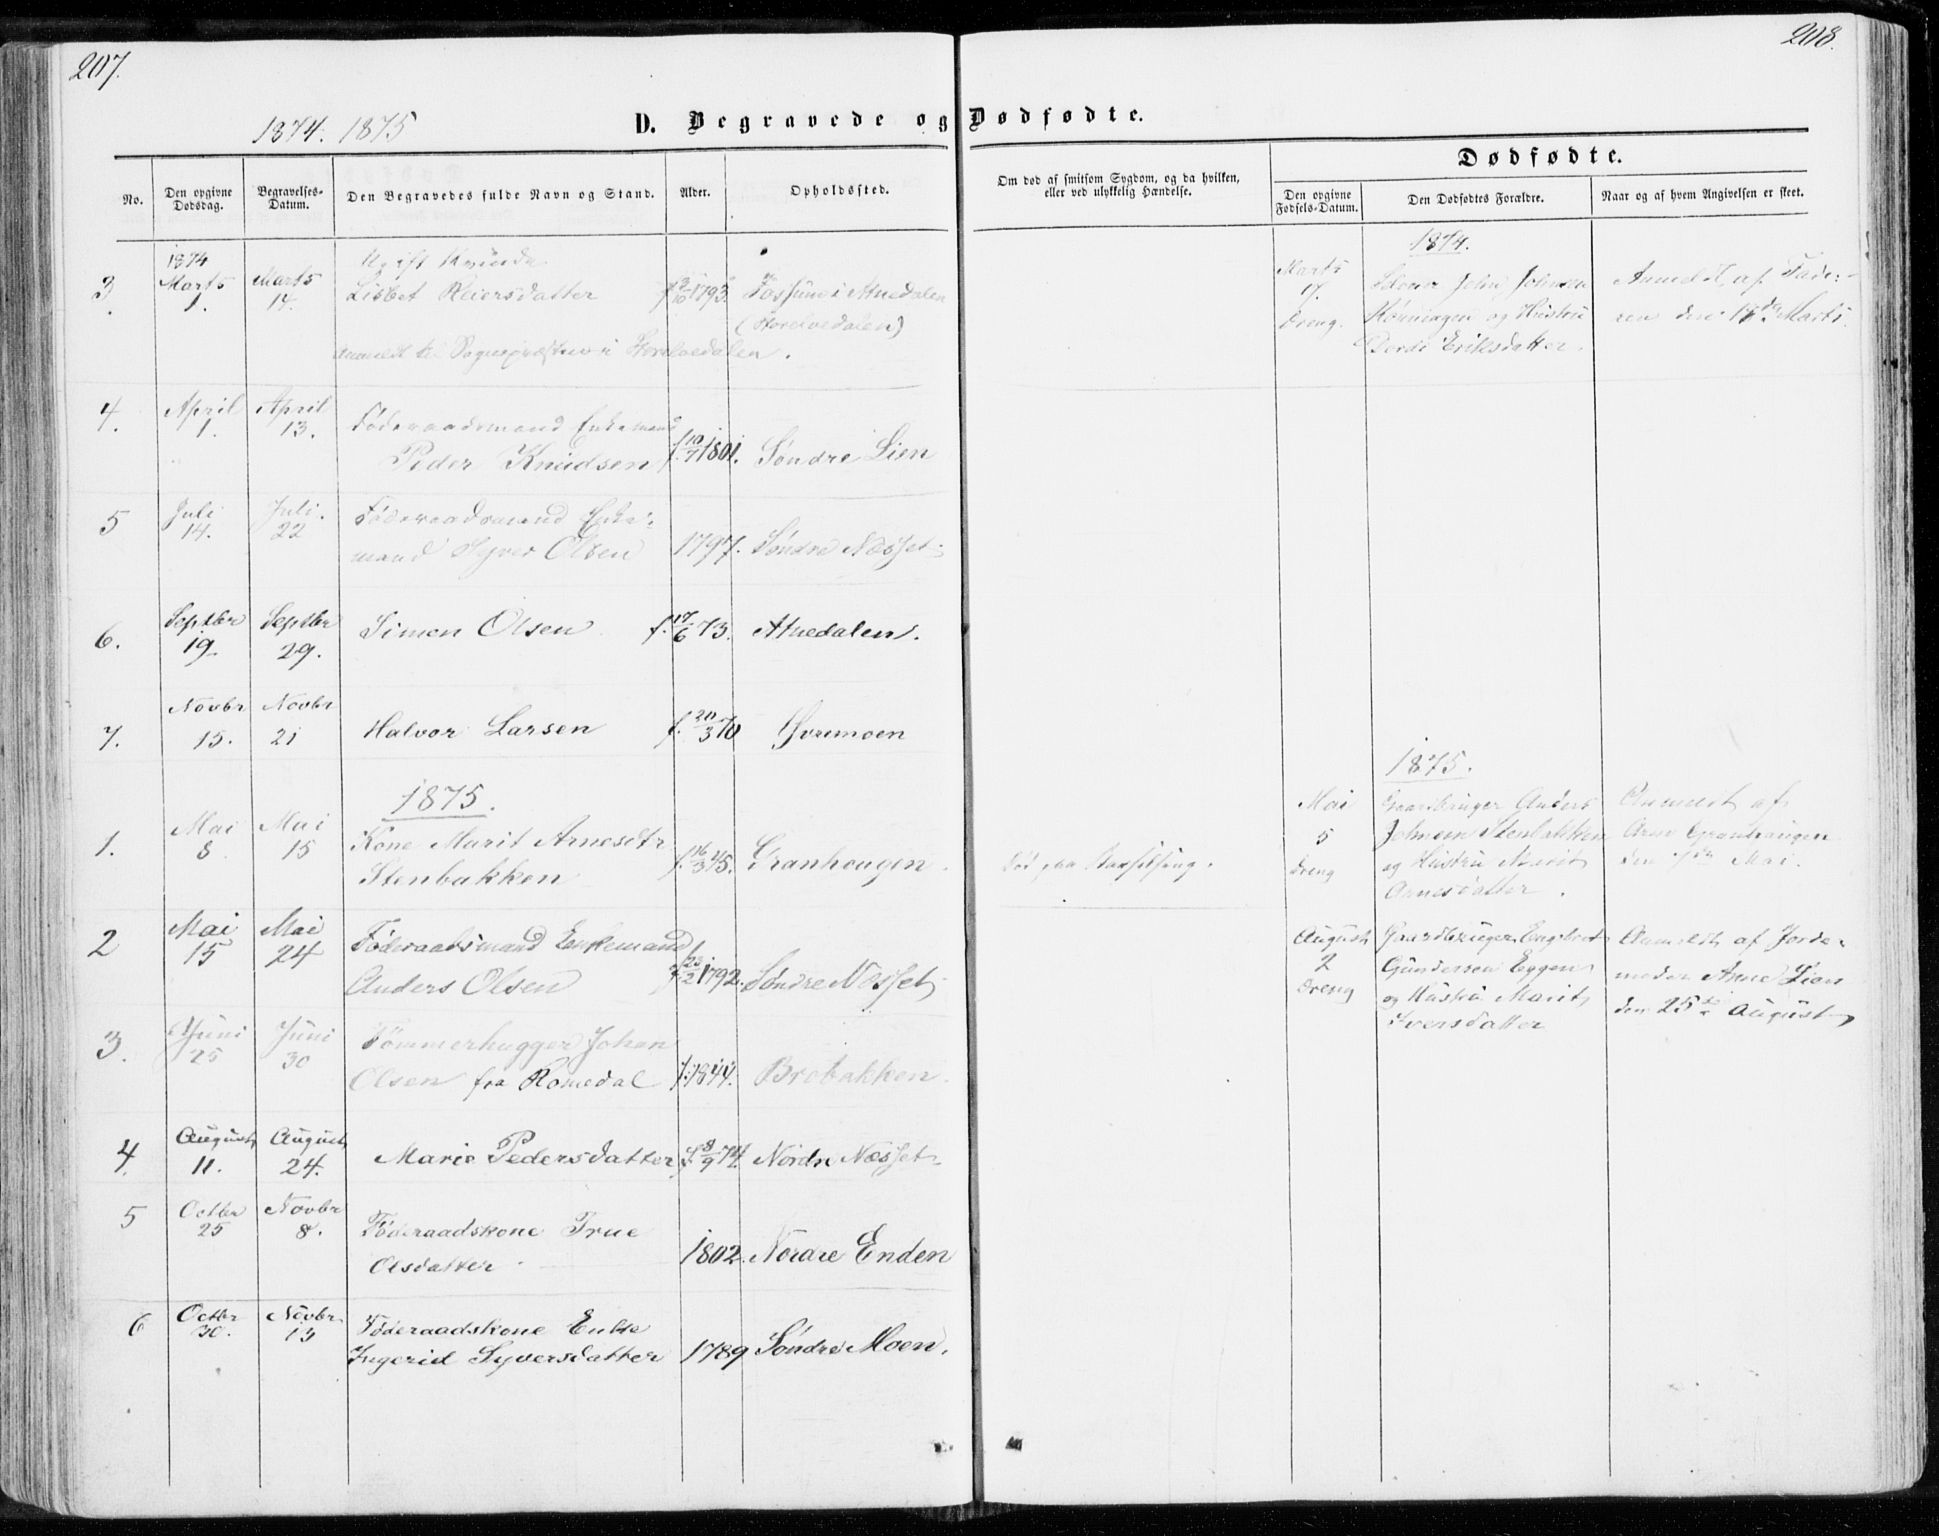 207.
208.
1874. 1875
D. Begravede og Dødfødte.
Dødfødte.
No.
Den opgivne Dødsdag.
Begravelses-Datum.
Den Begravedes fulde Navn og Stand.
Alder.
Opholdssted.
Om død af smitsom Sygdom, og da hvilken, eller ved ulykkelig Hændelse.
Den opgivne Fødsels-Datum.
Den Dødfødtes Forældre.
Naar og af hvem Angivelsen er skeet.
1874
3. Marts 1. Marts 14. Ugift Kvinde
Lisbet Reiersdatter f. 2/10 1793. Fossum i Atnedalen
(Storelvedalen)
anmeldt til Sognepræsten i Storelvedalen.
4. April 1. April 13. Føderaadsmand Enkemand
Peder Knudsen f. 10/7 1801. Søndre Lien
5 Juli 14. Juli. 22 Føderaadsmand Enke-
mand Syver Olsen 1797. Søndre Næsset.
6. Septbr 19 Septbr 29. Simen Olsen f. 17/6 73. Atnedalen.
7. Novbr 15. Novbr 21 Halvor Larsen f. 20/3 70 Øvremoen
1875.
1. Mai 8 Mai 15 Kone Marit Arnesdtr
Stenbakken f. 16/3 45. Granhougen. død paa Barselseng.
2 Mai 15 Mai 24 Føderaadsmand Enkemand
Anders Olsen f. 23/2 1792. Søndre Næsset
3. Juni 25 Juni 30 Tømmerhugger Johan
Olsen fra Romedal f. 1844. Brobakken.
4. August 11. August 24. Marie Pedersdatter f. 8/9 74. Nordre Næsset
5 Octbr 25 Novbr 8. Føderaadskone True
Olsdatter 1802. Nordre Enden
6 Octbr 30. Novbr 13 Føderaadskone Enke
Ingerid Syversdatter 1789 Søndre Moen.
1874.
Marts 17. Dreng. John Johnsen
Rønningen og Hustru
Dordi Eriksdatter.
Anmeldt af Fade-
ren den 17de Marts.
1875.
Mai 5 Dreng Gaardbruger Anders
Johnsen Stenbakken
og Hustru Marit
Arnesdatter.
Anmeldt af
Arne Granhaugen
den 7de Mai.
August 2 Dreng Gaardbruger Engebret
Gundersen Eggen
og Hustru Marit
Iversdatter
Anmeldt af Jorde-
moder Anne Lien
den 25de August